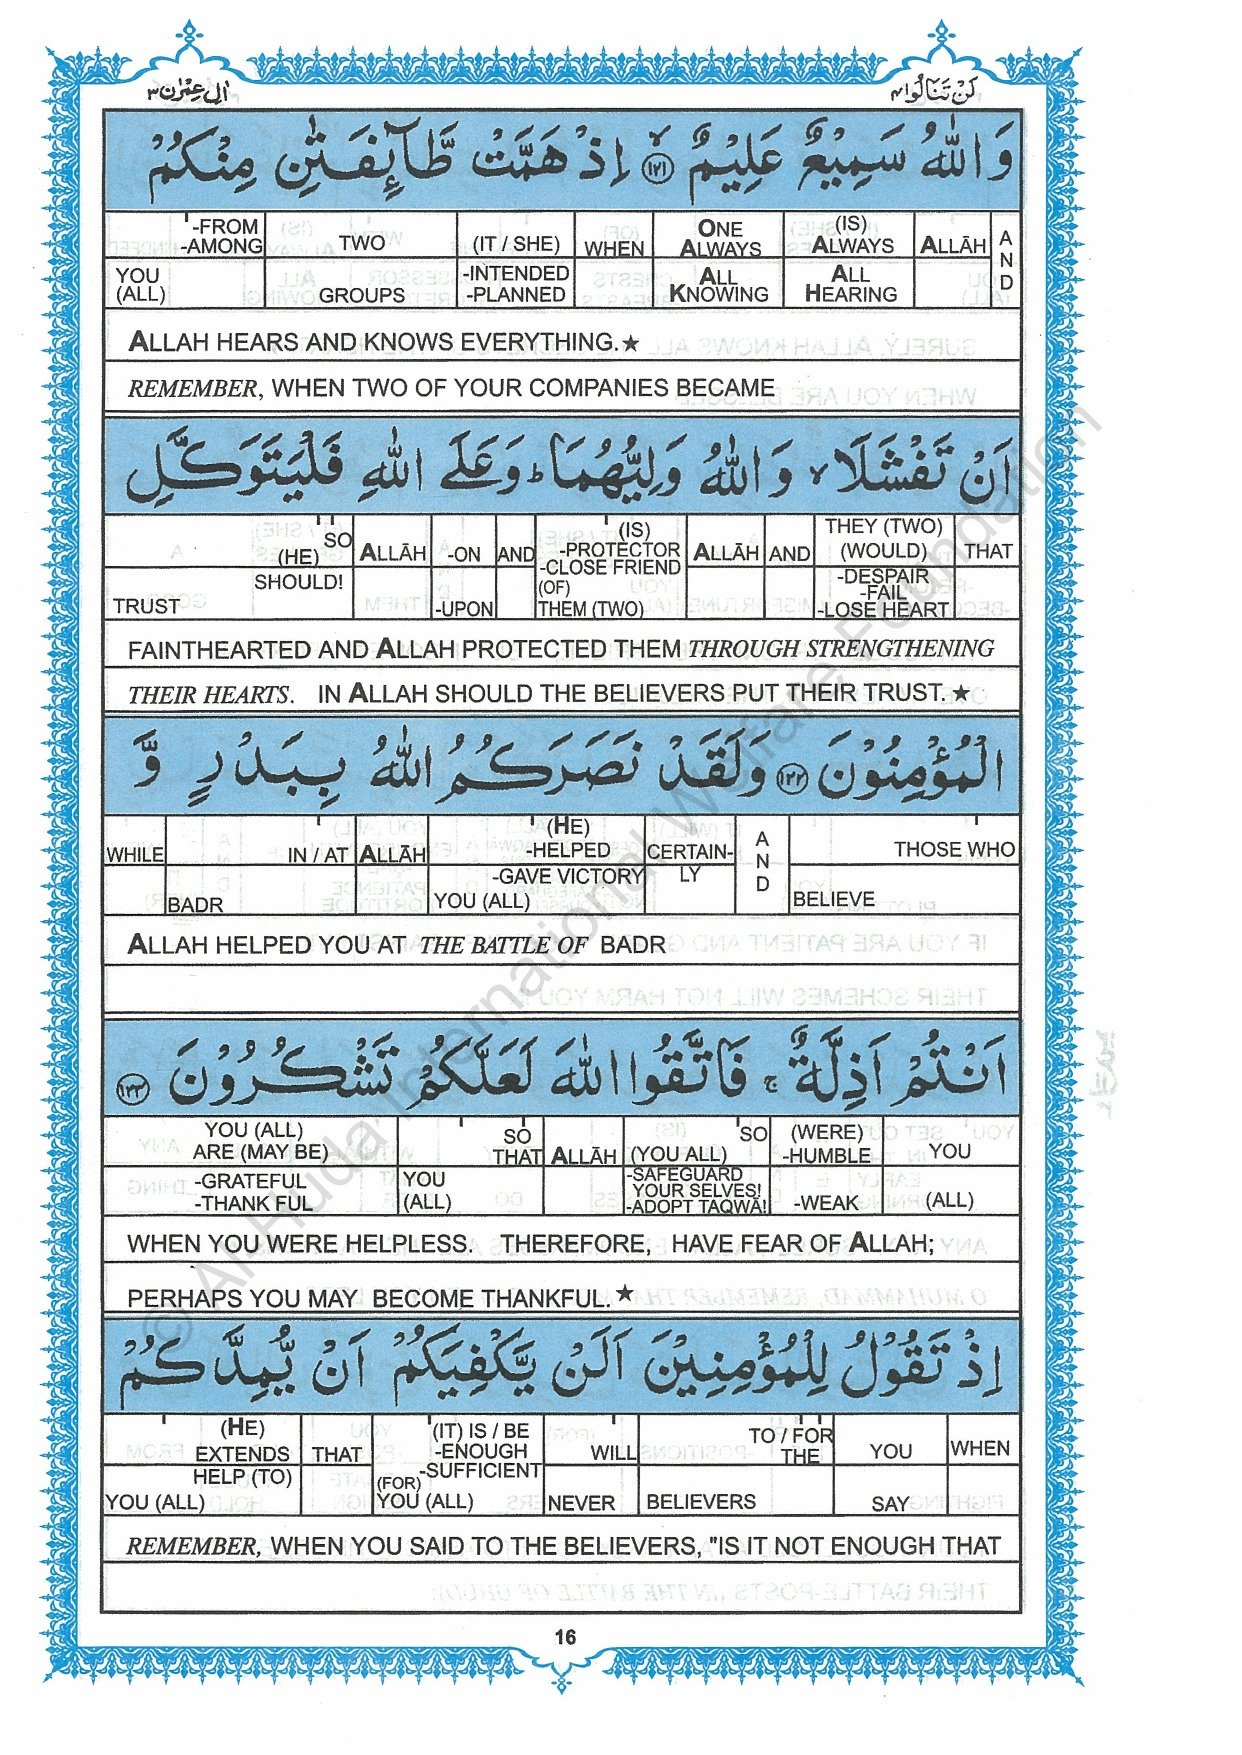 اٰل عِمْرٰن ٣
لَنْ تَنَالُوا ٤
وَاللّٰهُ سَمِيْعٌ عَلِيْمٌ ﴿١٢١﴾ اِذْ هَمَّتْ طَّآئِفَتٰنِ مِنْكُمْ
-FROM -AMONG TWO (IT / SHE) WHEN ONE ALWAYS (IS) ALWAYS ALLĀH AND
YOU (ALL) GROUPS -INTENDED -PLANNED ALL KNOWING ALL HEARING
ALLAH HEARS AND KNOWS EVERYTHING.★
REMEMBER, WHEN TWO OF YOUR COMPANIES BECAME
اَنْ تَفْشَلَا ۙ وَاللّٰهُ وَلِيُّهُمَا ؕ وَعَلَى اللّٰهِ فَلْيَتَوَكَّلِ
SO (HE) ALLĀH -ON AND (IS) -PROTECTOR -CLOSE FRIEND ALLĀH AND THEY (TWO) (WOULD) THAT
TRUST SHOULD! -UPON (OF) THEM (TWO) -DESPAIR -FAIL -LOSE HEART
FAINTHEARTED AND ALLAH PROTECTED THEM THROUGH STRENGTHENING
THEIR HEARTS. IN ALLAH SHOULD THE BELIEVERS PUT THEIR TRUST.★
الْمُؤْمِنُوْنَ ﴿١٢٢﴾ وَلَقَدْ نَصَرَكُمُ اللّٰهُ بِبَدْرٍ وَّ
WHILE IN / AT ALLĀH (HE) -HELPED CERTAIN- AND THOSE WHO
BADR -GAVE VICTORY YOU (ALL) LY BELIEVE
ALLAH HELPED YOU AT THE BATTLE OF BADR
اَنْتُمْ اَذِلَّةٌ ۚ فَاتَّقُوا اللّٰهَ لَعَلَّكُمْ تَشْكُرُوْنَ ﴿١٢٣﴾
YOU (ALL) ARE (MAY BE) SO THAT ALLĀH SO (YOU ALL) (WERE) -HUMBLE YOU
-GRATEFUL -THANKFUL YOU (ALL) -SAFEGUARD YOUR SELVES! -ADOPT TAQWĀ! -WEAK (ALL)
WHEN YOU WERE HELPLESS. THEREFORE, HAVE FEAR OF ALLAH;
PERHAPS YOU MAY BECOME THANKFUL.★
اِذْ تَقُوْلُ لِلْمُؤْمِنِيْنَ اَلَنْ يَّكْفِيَكُمْ اَنْ يُّمِدَّكُمْ
(HE) EXTENDS THAT (IT) IS / BE -ENOUGH -SUFFICIENT WILL TO / FOR THE YOU WHEN
YOU (ALL) HELP (TO) (FOR) YOU (ALL) NEVER BELIEVERS SAY
REMEMBER, WHEN YOU SAID TO THE BELIEVERS, "IS IT NOT ENOUGH THAT
16
© Al-Huda International Welfare Foundation